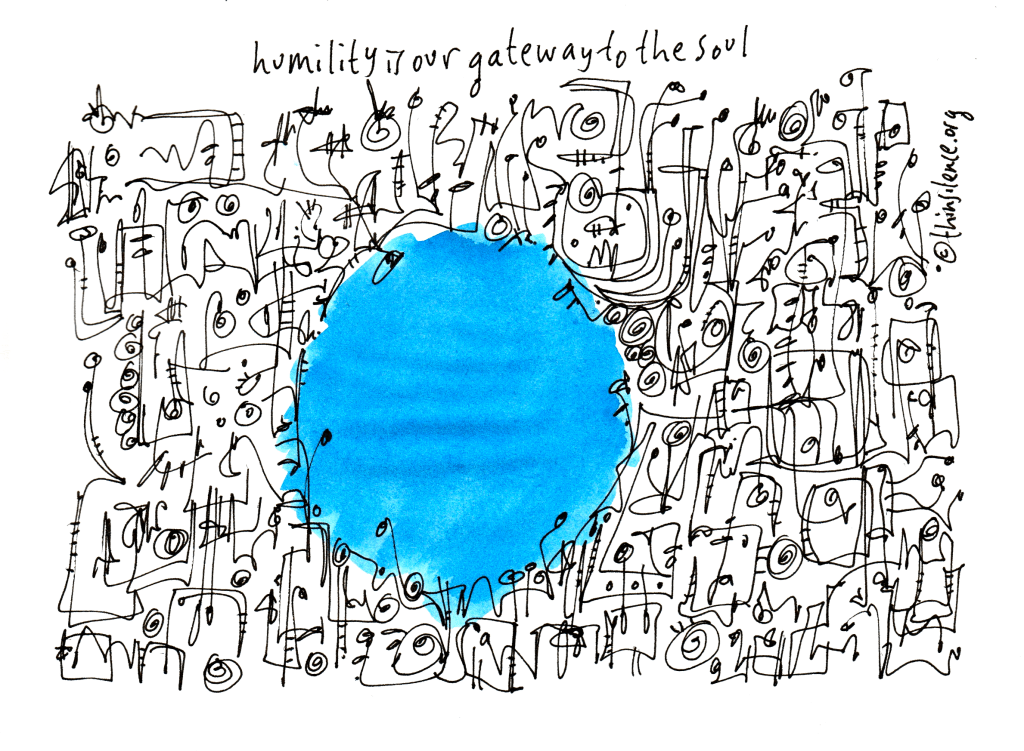 humility is our gateway to the soul
©thinsilence.org